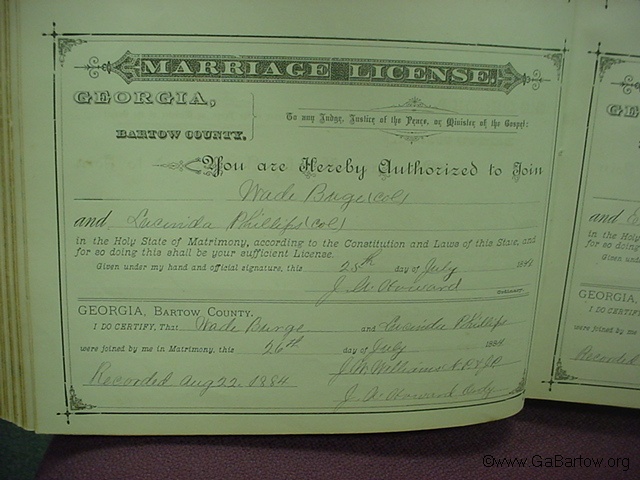 MARRIAGE LICENSE.
GEORGIA,
BARTOW COUNTY.
To any Judge, Justice of the Peace, or Minister of the Gospel:
You are Hereby Authorized to Join
Wade Burge (Col)
and Lucinda Phillips (Col)
in the Holy State of Matrimony, according to the Constitution and Laws of this State, and
for so doing this shall be your sufficient License.
Given under my hand and official signature, this 25th day of July 1884
J. A. Howard Ordinary.
GEORGIA, BARTOW COUNTY.
I DO CERTIFY, That Wade Burge and Lucinda Phillips
were joined by me in Matrimony, this 26th day of July 1884
J. M. Williams N.P. & J.P.
Recorded Aug 22 1884.
J. A. Howard Ordy
MA
GEORGIA
BA
and
in the Holy
for so doing
Given
GEORGIA,
I DO CE
were joined by m
Recorded
©www.GaBartow.org